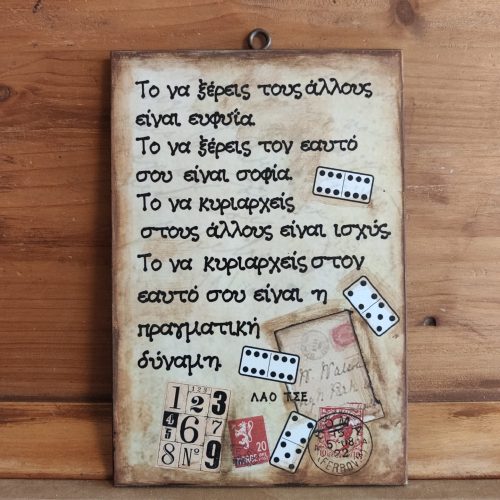 Το να ξέρεις τους άλλους
είναι ευφυΐα.
Το να ξέρεις τον εαυτό
σου είναι σοφία.
Το να κυριαρχείς
στους άλλους είναι ισχύς.
Το να κυριαρχείς στον
εαυτό σου είναι η
πραγματική
δύναμη.
ΛΑΟ ΤΣΕ
123
1 2 3
4 5 6 7
8 Nº 9
20